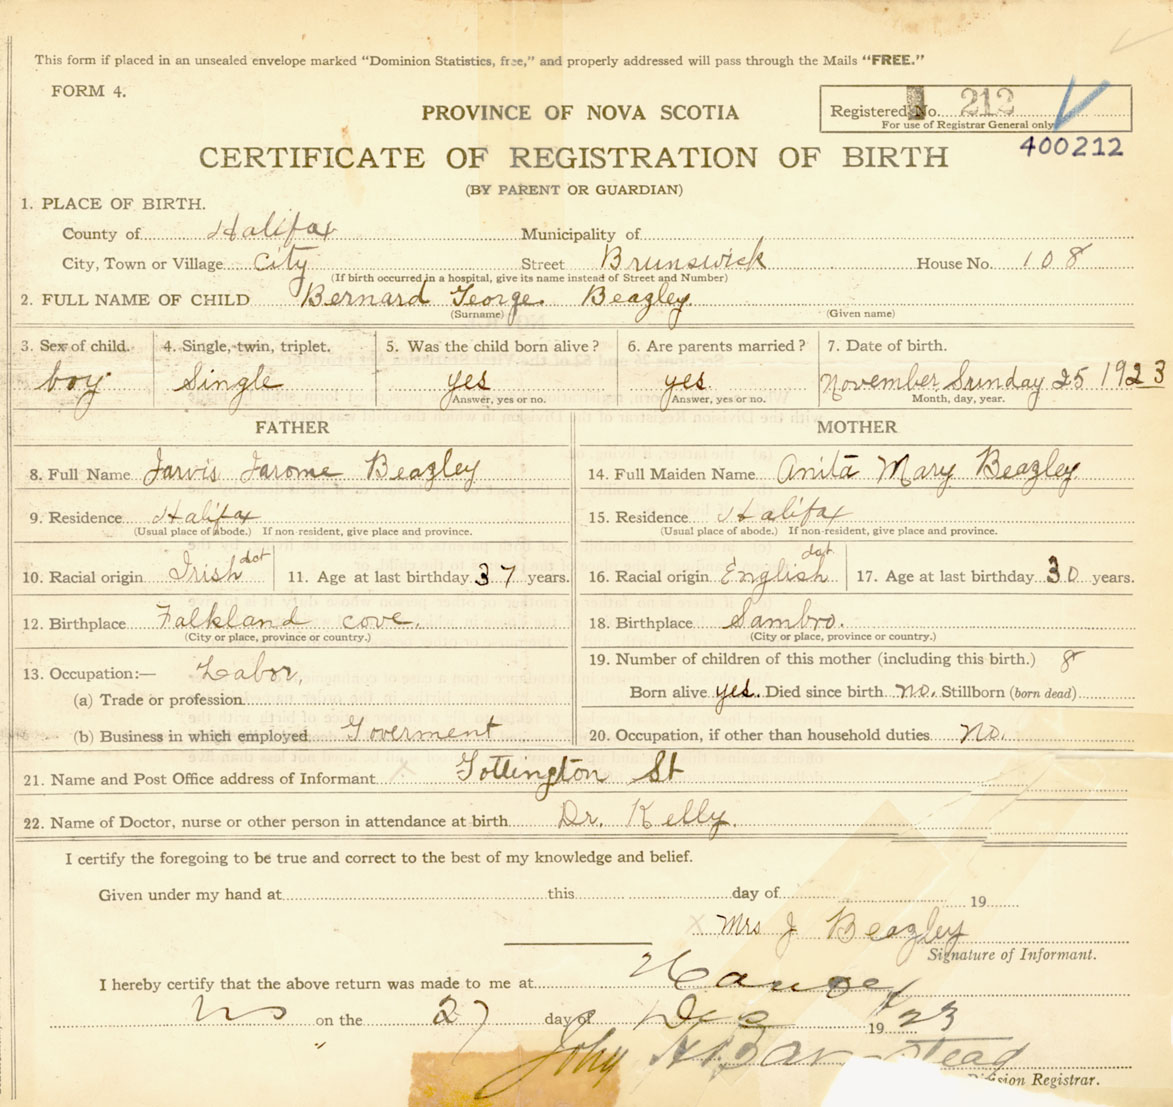 This form if placed in an unsealed envelope marked "Dominion Statistics, free," and properly addressed will pass through the Mails "FREE."
FORM 4.
PROVINCE OF NOVA SCOTIA
Registered No. 212
For use of Registrar General only
400212
CERTIFICATE OF REGISTRATION OF BIRTH
(BY PARENT OR GUARDIAN)
1. PLACE OF BIRTH.
County of Halifax Municipality of
City, Town or Village City Street Brunswick House No. 108
(If birth occurred in a hospital, give its name instead of Street and Number)
2. FULL NAME OF CHILD Bernard George Beazley
(Surname) (Given name)
3. Sex of child. 4. Single, twin, triplet. 5. Was the child born alive? 6. Are parents married? 7. Date of birth.
boy Single yes yes November Sunday 25 1923
Answer, yes or no. Answer, yes or no. Month, day, year.
FATHER MOTHER
8. Full Name Jarvis Jarome Beazley 14. Full Maiden Name Anita Mary Beazley
9. Residence Halifax 15. Residence Halifax
(Usual place of abode.) If non-resident, give place and province. (Usual place of abode.) If non-resident, give place and province.
10. Racial origin Irish dct 11. Age at last birthday 37 years. 16. Racial origin English dct 17. Age at last birthday 30 years.
12. Birthplace Falkland cove. 18. Birthplace Sambro.
(City or place, province or country.) (City or place, province or country.)
13. Occupation:— Labor, 19. Number of children of this mother (including this birth.) 8
(a) Trade or profession Born alive yes. Died since birth no. Stillborn (born dead)
(b) Business in which employed Goverment 20. Occupation, if other than household duties no.
21. Name and Post Office address of Informant x Gottington St
22. Name of Doctor, nurse or other person in attendance at birth Dr. Kelly.
I certify the foregoing to be true and correct to the best of my knowledge and belief.
Given under my hand at this day of 19
x Mrs J Beazley
Signature of Informant.
I hereby certify that the above return was made to me at
NS on the 27 day of Dec 1923
John
Division Registrar.